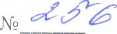 № 256